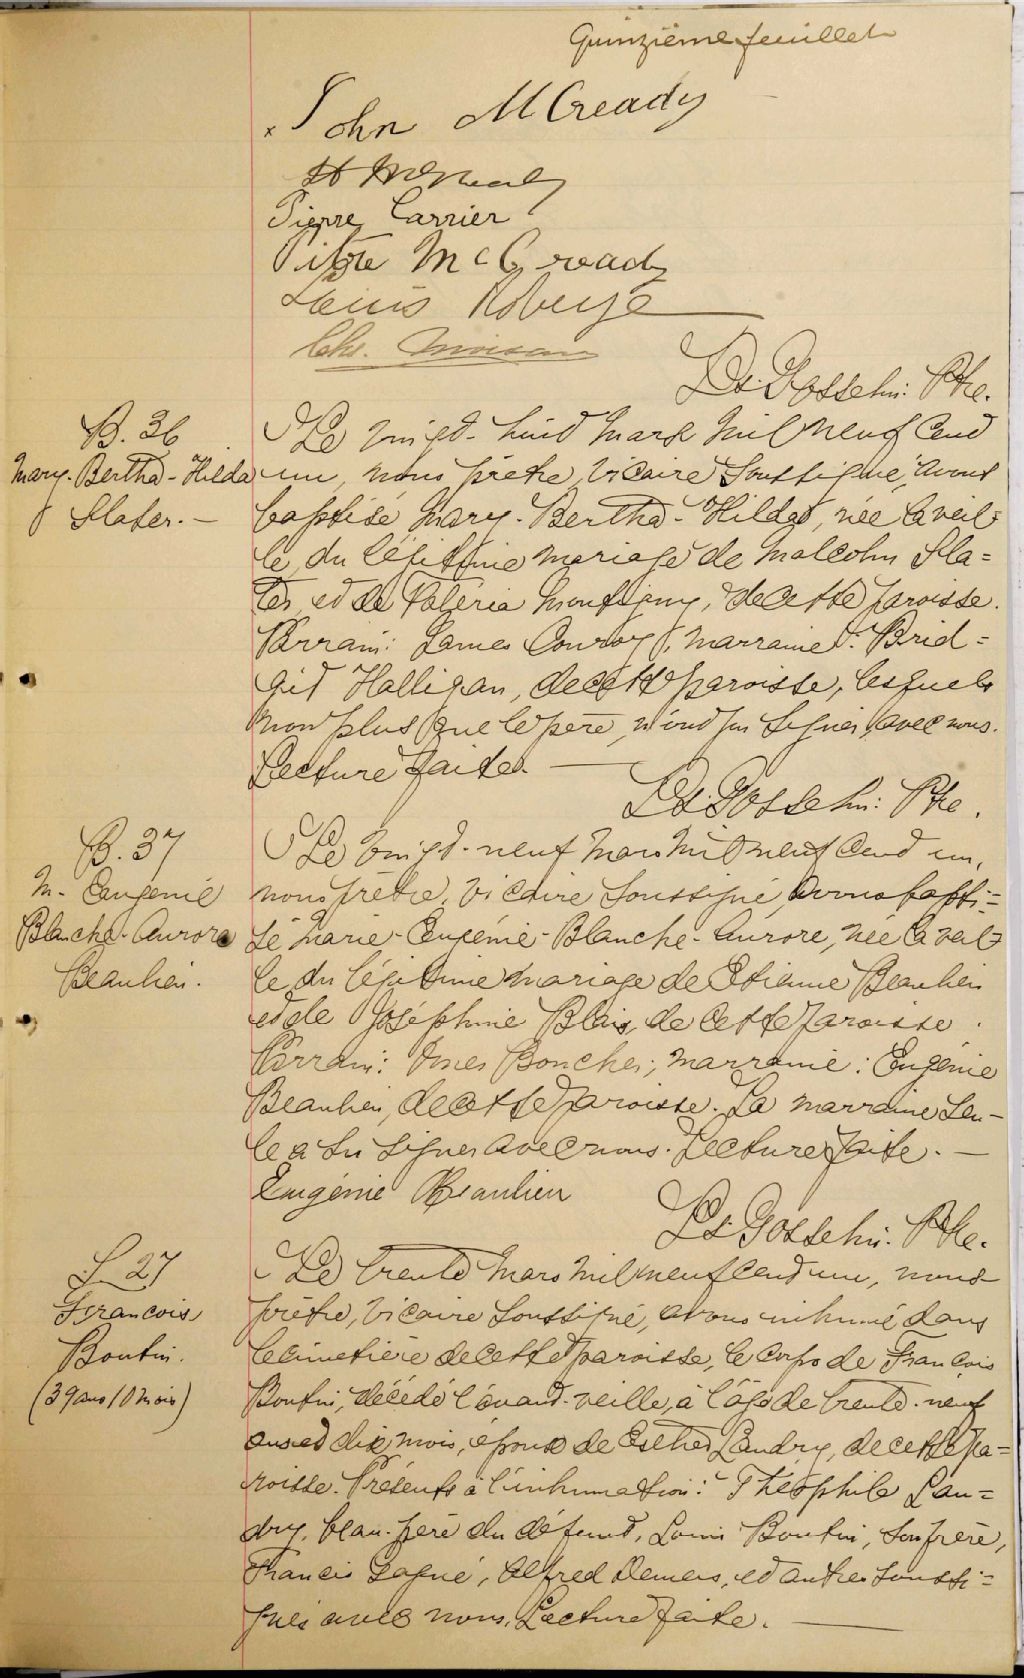 Quinzième feuillet
x John McCready
Pierre Carrier
Pitre McCready
Louis Roberge
Chs. Moisan
Ls. Gosselin: Ptre.
B. 36
Mary-Bertha-Hilda
Slater. —
Le vingt-huit Mars mil neuf cent
un, nous prêtre, vicaire soussigné, avons
baptisé Mary-Bertha-Hilda, née la veil=
le, du légitime mariage de Malcolm Sla=
ter, et de Valéria Montigny, de cette paroisse.
Parrain: James Conroy; marraine: Brid=
git Halligan, de cette paroisse, lesquels
non plus que le père, n'ont pu signer avec nous.
Lecture faite. —
Ls. Gosselin: Ptre.
B. 37
M. Eugénie
Blanche-Aurore
Beaulieu.
Le vingt-neuf Mars mil neuf cent un,
nous prêtre, vicaire soussigné, avons bapti=
sé Marie-Eugénie-Blanche-Aurore, née la veil=
le du légitime mariage de Etienne Beaulieu
et de Joséphine Blais, de cette paroisse.
Parrain: Boucher; marraine: Eugénie
Beaulieu, de cette paroisse. La marraine seu-
le a su signer avec nous. Lecture faite. —
Eugénie Beaulieu
Ls. Gosselin: Ptre.
S. 27
François
Boutin.
(39 ans 10 mois)
Le trente Mars mil neuf cent un, nous
prêtre, vicaire soussigné, avons inhumé dans
le cimetière de cette paroisse, le corps de François
Boutin, décédé l'avant-veille, à l'âge de trente-neuf
ans et dix mois, époux de Esther Landry, de cette pa=
roisse. Présents à l'inhumation: Théophile Lan=
dry, beau-père du défunt, Louis Boutin, son frère,
Francis Gagné, Alfred Demers, et autres soussi=
gnés avec nous. Lecture faite. —